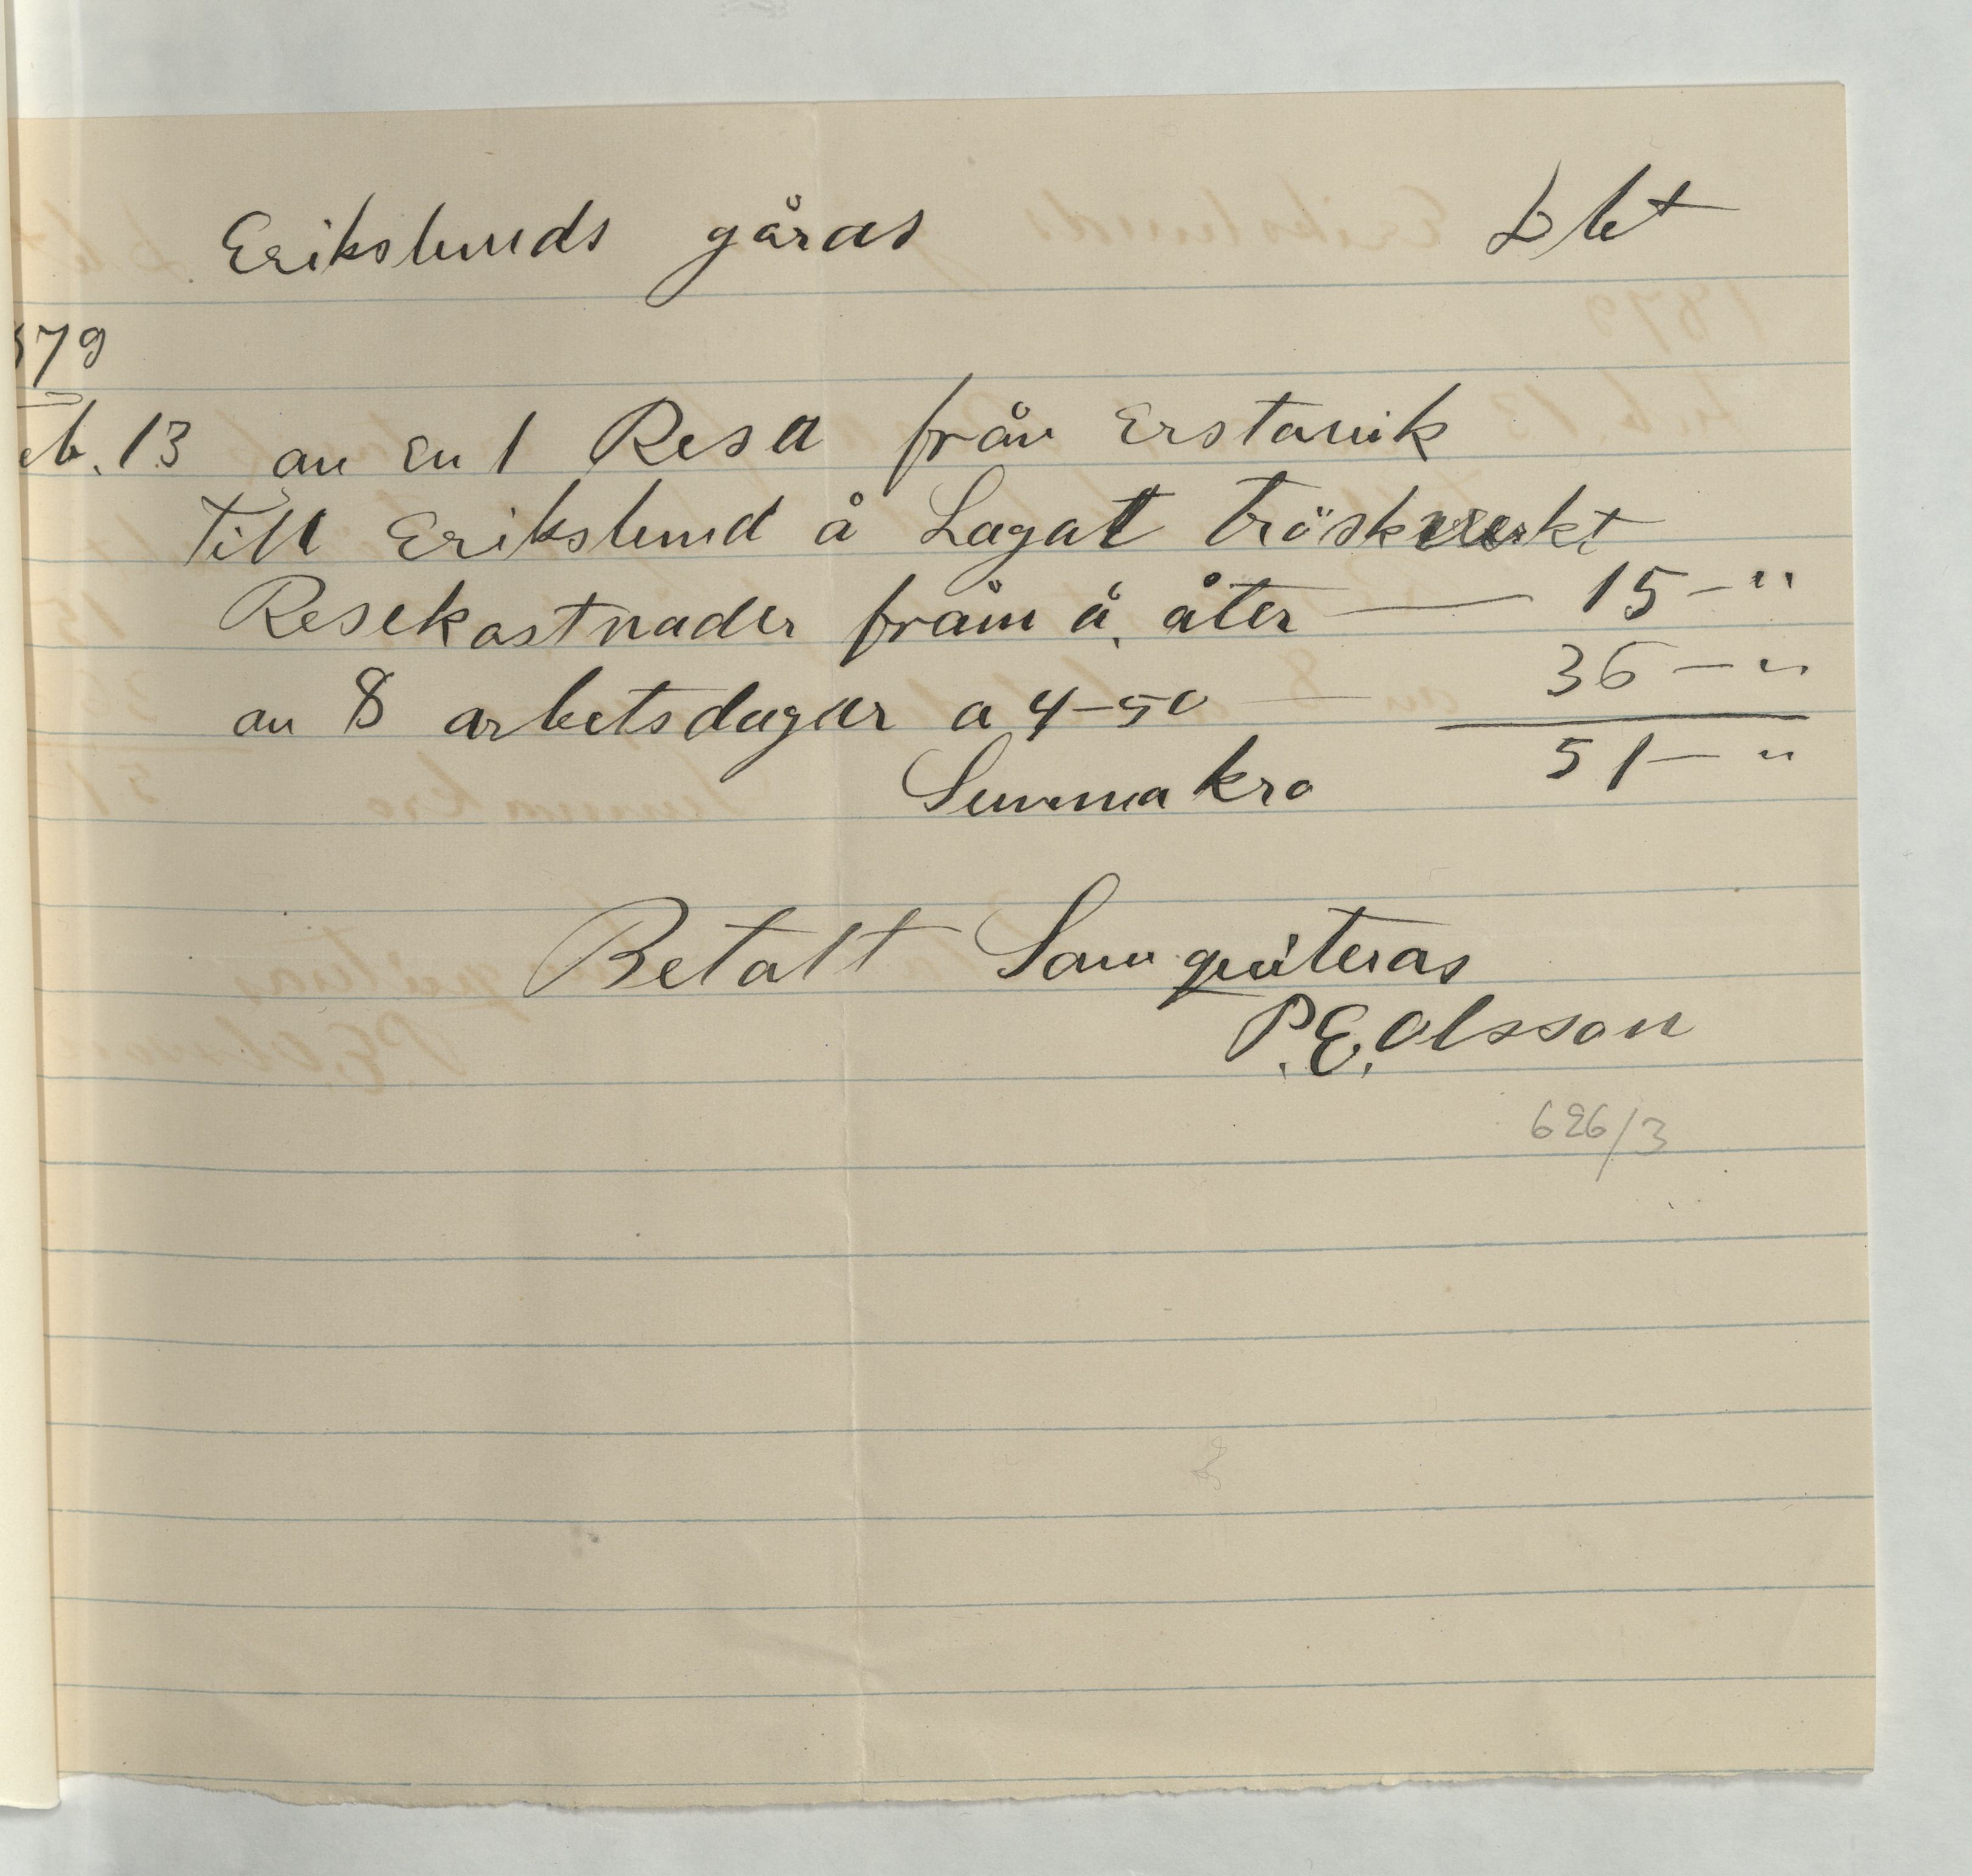 Erikslunds gårds Dbt
879
eb. 13 an en 1 Resa från Erstavik
till Erikslund å Lagat tröskverkt
Resekostnader fråm å åter — 15 - "
an 8 arbetsdagar a 4-50 — 36 — "
Summa kro 51 — "
Betalt Som quiteras
P.E. Olsson
626/3